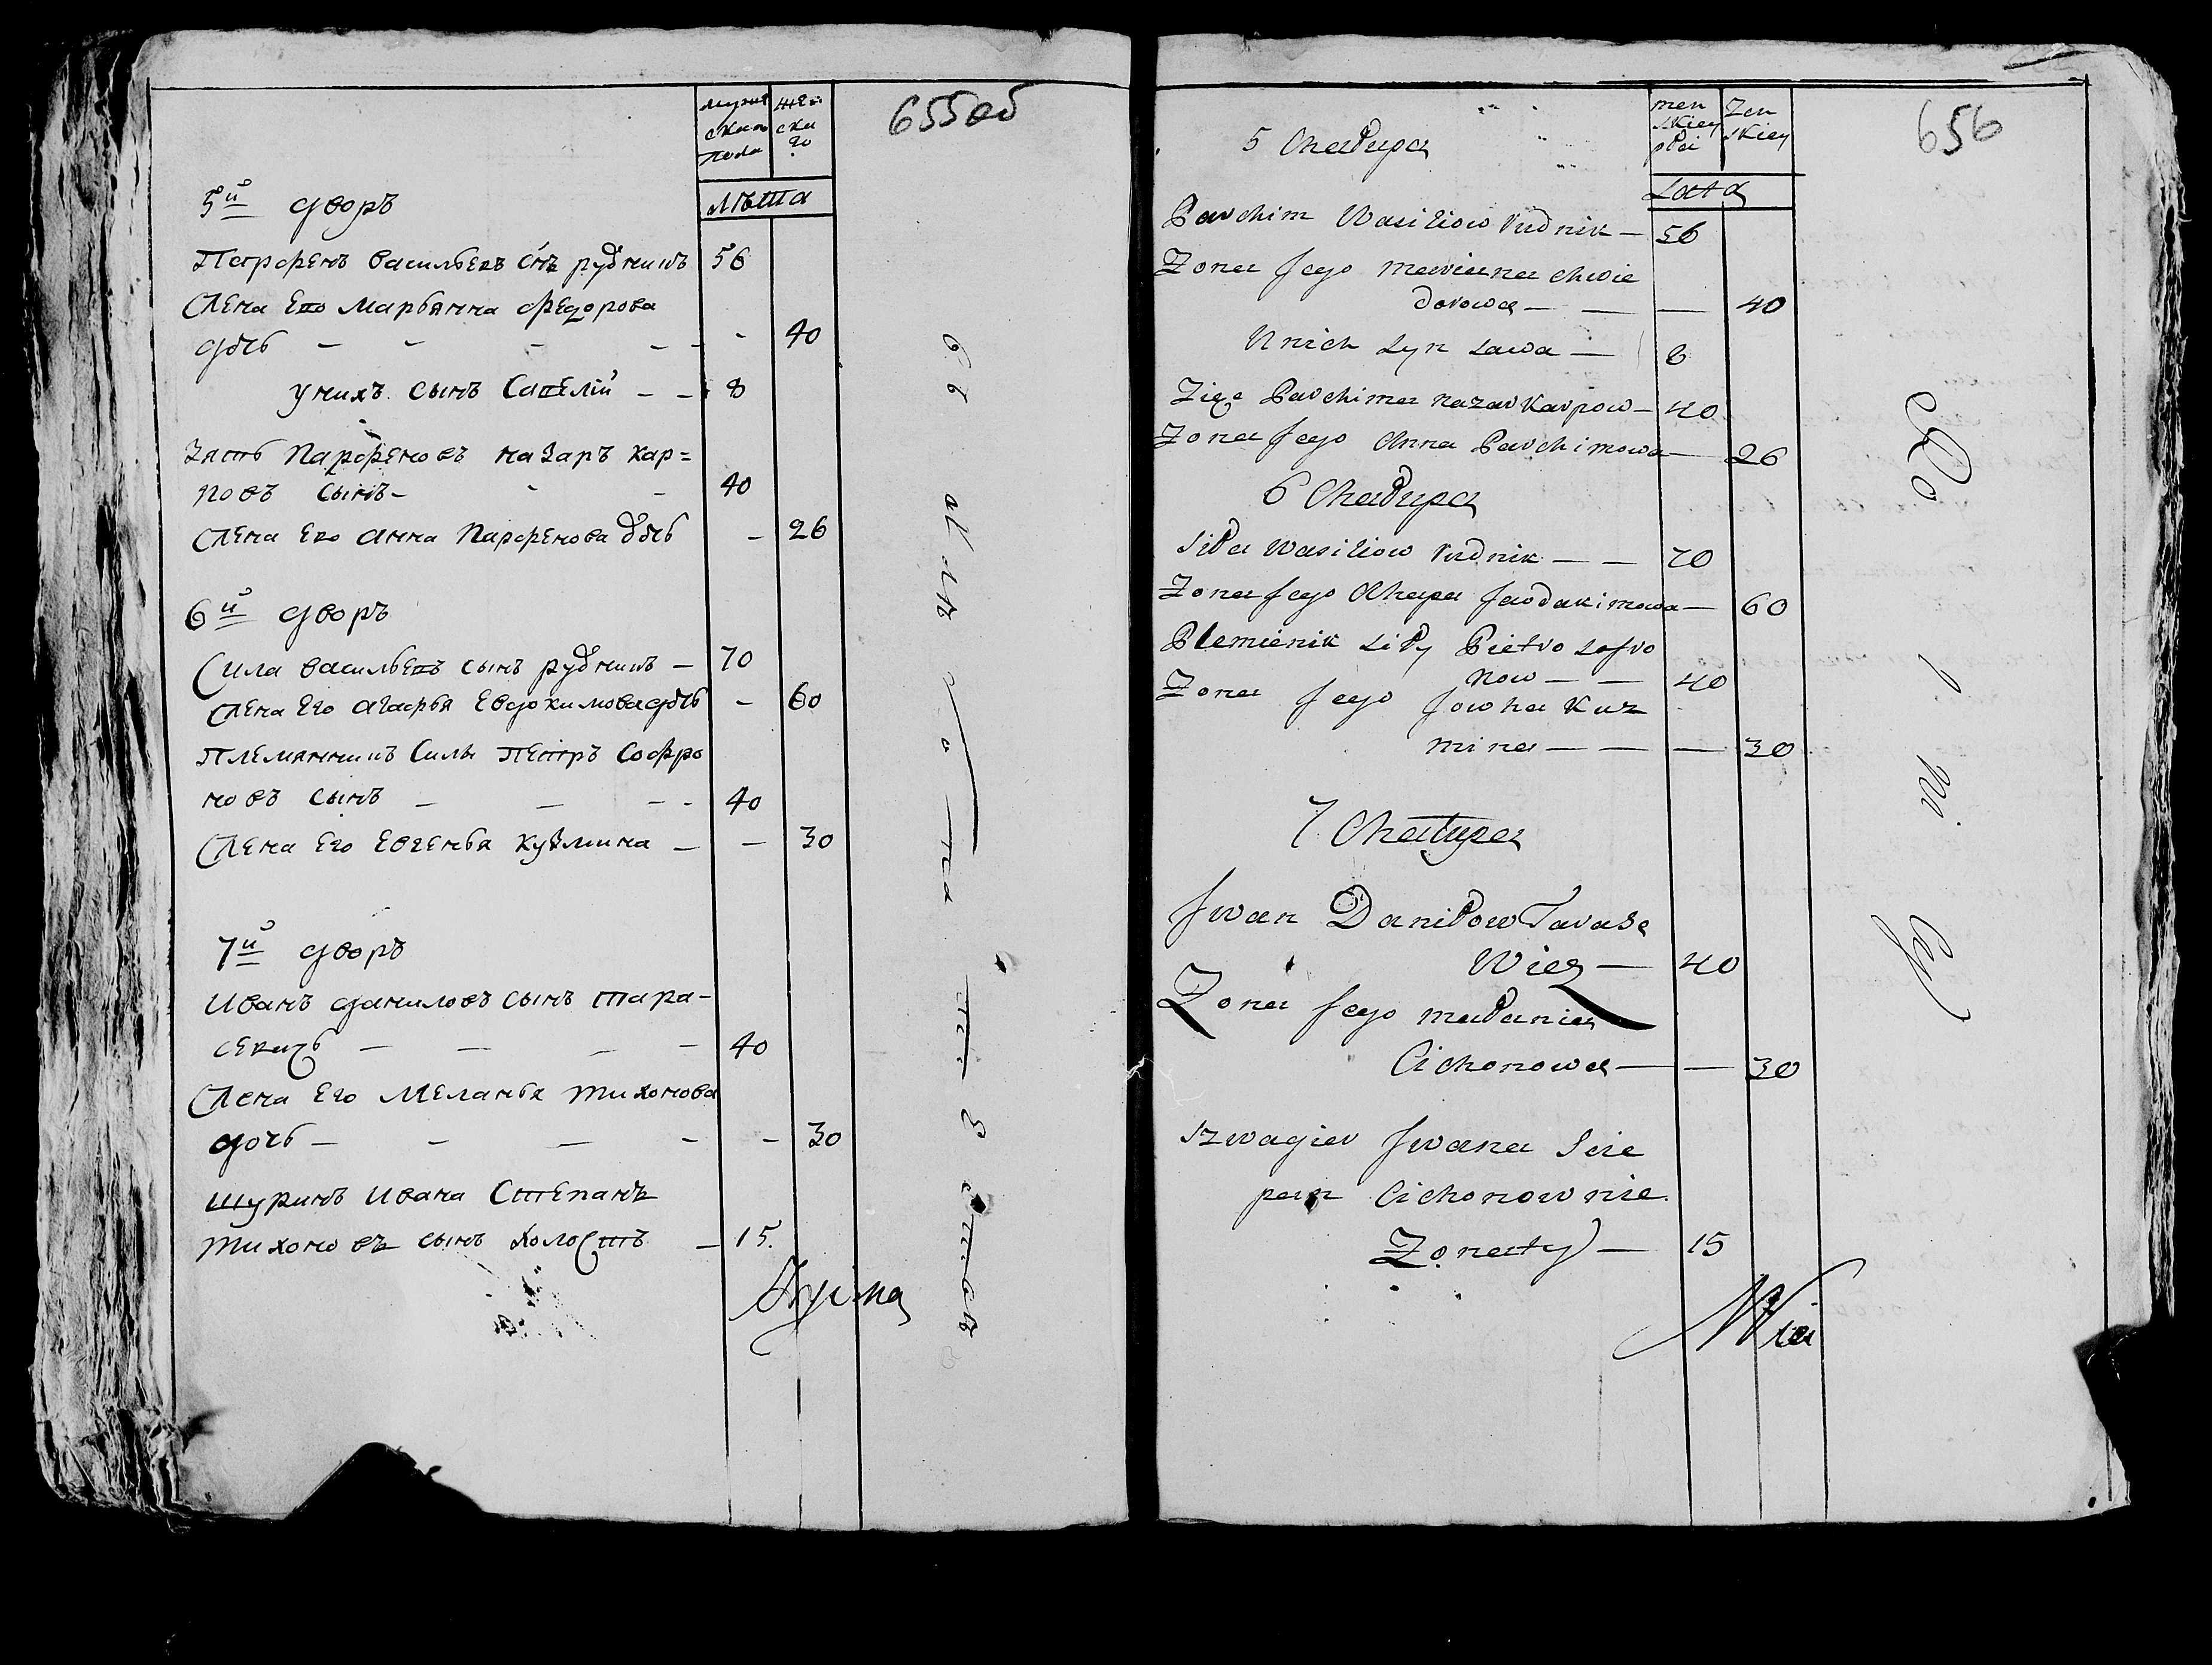 655об
мужескаго пола
женскаго
лѣта
5й дворъ
Парфенъ васильевъ снъ рудникъ 56
Жена Его Марьянна Федорова
дочь - - - - - 40
у нихъ сынъ Савелiй - - 8
Зять Парфеновъ назаръ кар=
повъ сынъ - - - 40
Жена Его Анна Парфенова дочь - 26
6й дворъ
Сила васильевъ сынъ рудникъ - 70
Жена Его Агафья Евдокимова дочь - 60
Племянникъ Силы Петръ Софро
новъ сынъ - - - - 40
Жена Его Евгенья кузмина - - 30
7й дворъ
Иванъ даниловъ сынъ тара-
севичь - - - - 40
Жена Его Меланья тихонова
дочь - - - - - 30
шуринъ ивана Степанъ
тихоновъ сынъ холостъ - 15.
656
menskiey płci
Zenskiey
Lata
5 Chałupa
Parchim Wasiliow Rudnik — 56
Zona Jego mariana Chwie
dorowa — — — 40
U nich Syn Sawa — 8
Zięc Parchima nazar Karpow — 40
Zona Jego Anna Parchimowa — 26
6 Chałupa
Siła Wasiliow Rudnik — — 70
Zona Jego Ahapa Jewdakimowa — 60
Plemienik Siły Pietro Sofro
now — — 40
Zona Jego Jowha Kuz
mina — — — 30
7 Chałupa
Jwan Daniłow Tarase
Wicz — 40
Zona Jego małania
Cichonowa — — 30
Szwagier Jwana Scie
pan Cichonow nie
Zonaty — 15